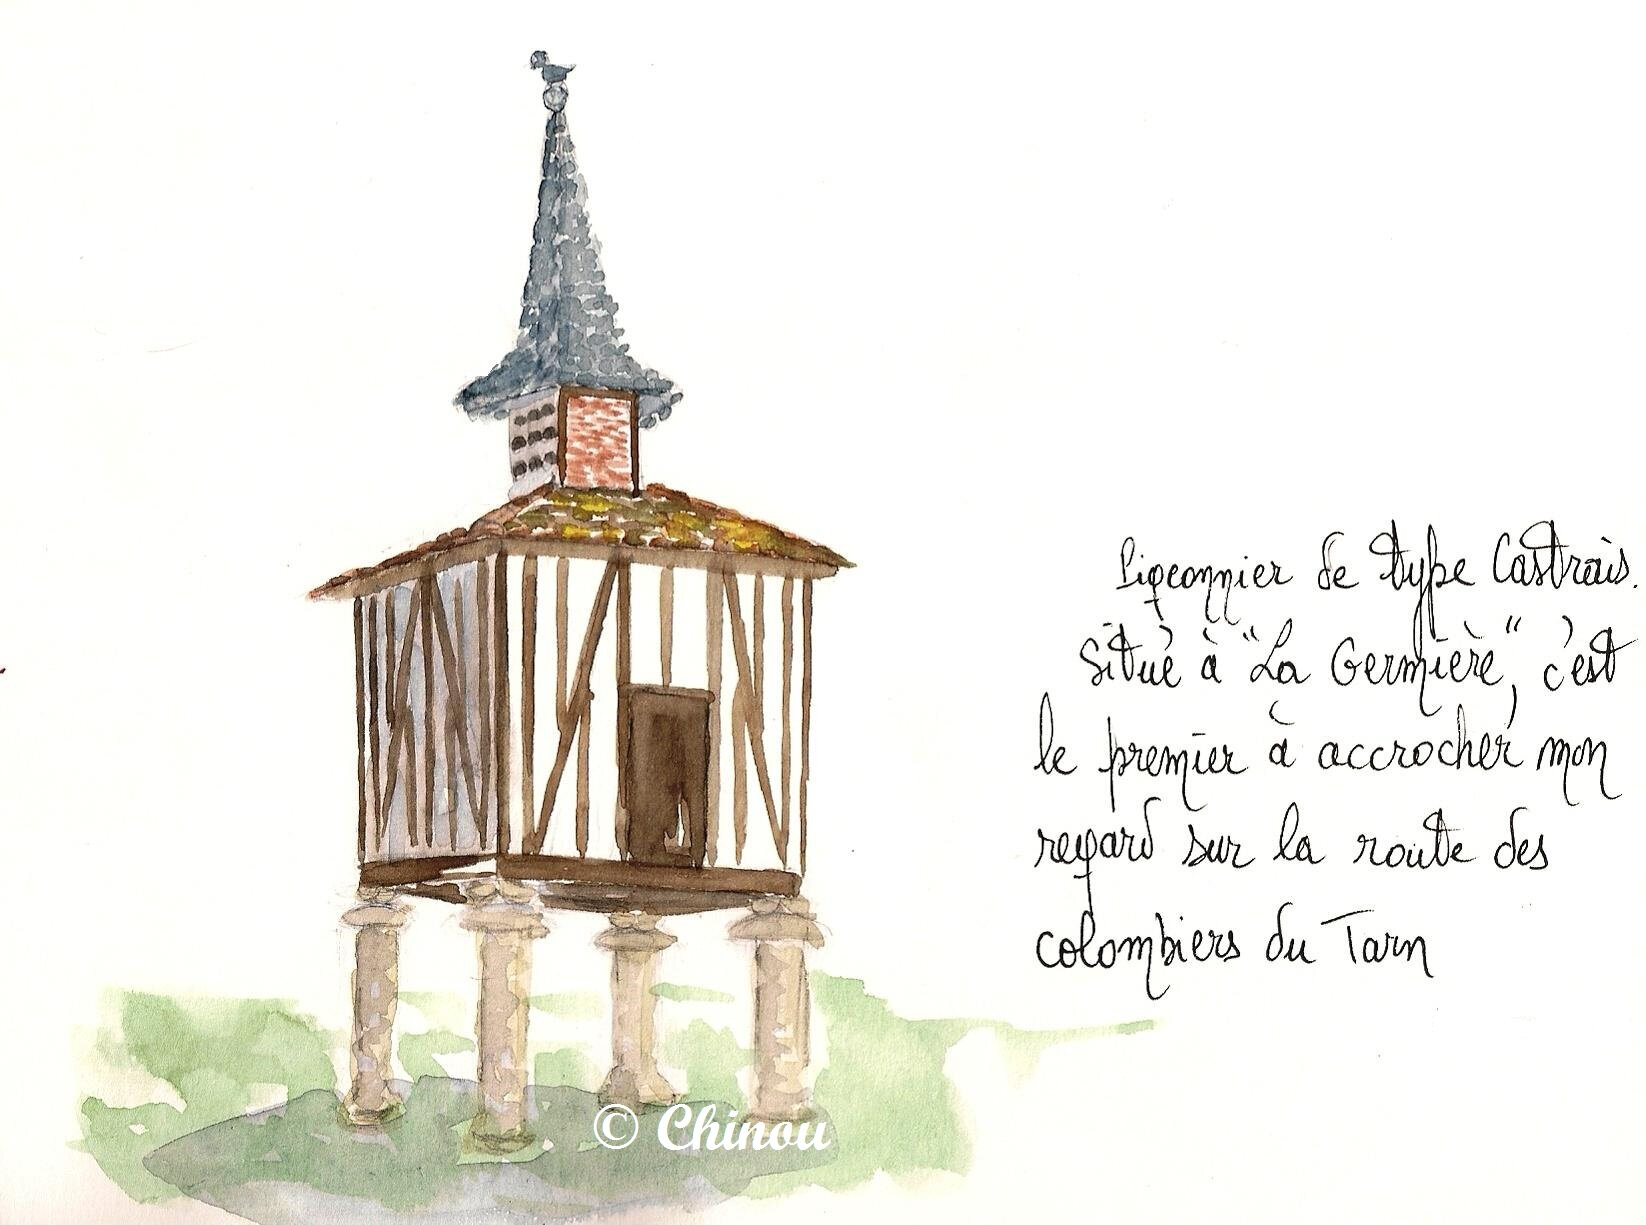 Pigeonnier de type Castrais.
Situé à "La Germière", c'est
le premier à accrocher mon
regard sur la route des
colombiers du Tarn
© Chinou